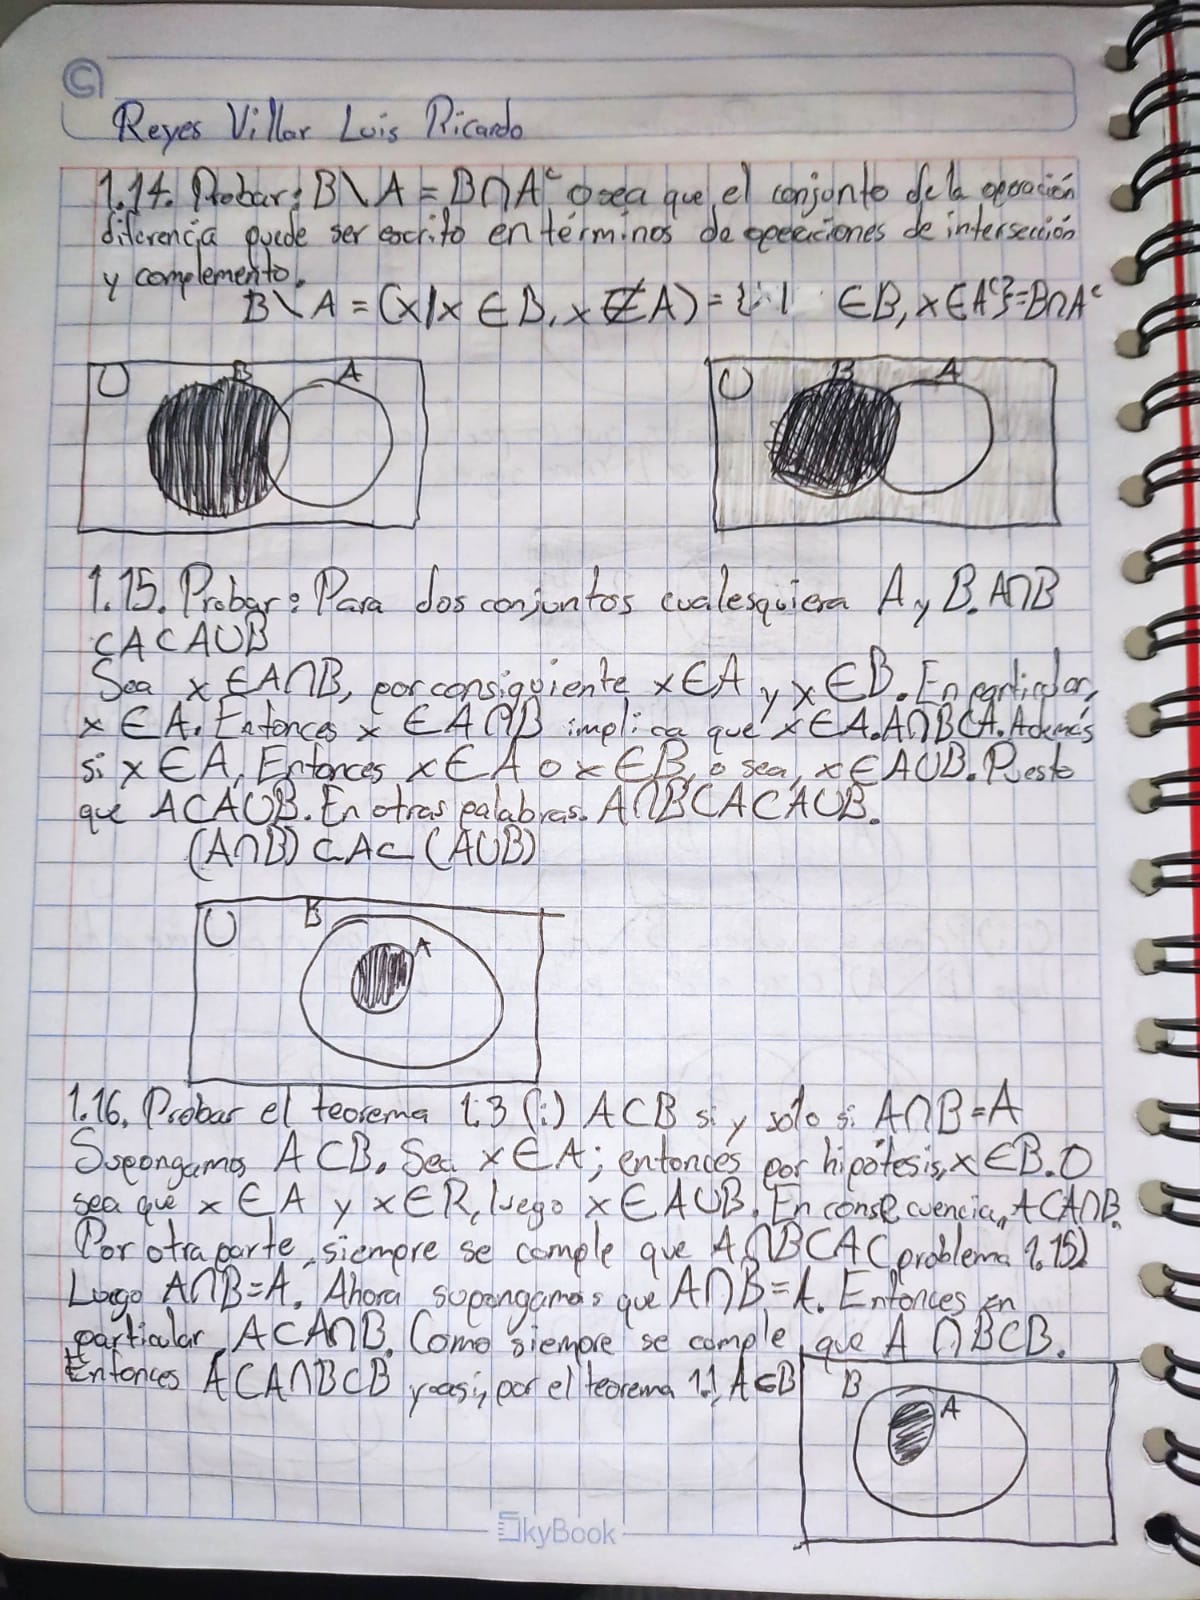 Reyes Villar Luis Ricardo
1.14. Probar: B\A = B∩Aᶜ o sea que el conjunto de la operación
diferencia puede ser escrito en términos de operaciones de intersección
y complemento.
B\A = (x|x ∈ B, x ∉ A) = {:·| ∈B, x∈Aᶜ}=B∩Aᶜ
U B A
U B A
1.15. Probar: Para dos conjuntos cualesquiera A y B. A∩B
⊂A⊂A∪B
Sea x∈A∩B, por consiguiente x∈A y x∈B. En particular,
x∈A. Entonces x∈A∩B implica que x∈A. A∩B⊂A. Además
si x∈A, Entonces x∈A o x∈B, o sea, x∈A∪B. Puesto
que A⊂A∪B. En otras palabras. A∩B⊂A⊂A∪B.
(A∩B)⊂A⊂(A∪B)
U B A
1.16. Probar el teorema 1.3 (i) A⊂B si y solo si A∩B=A
Supongamos A⊂B. Sea x∈A; entonces por hipótesis, x∈B. O
sea que x∈A y x∈R, luego x∈A∪B. En consecuencia, A⊂A∩B.
Por otra parte, siempre se comple que A∩B⊂A (problema 1.15)
Luego A∩B=A. Ahora supongamos que A∩B=A. Entonces en
particular, A⊂A∩B. Como siempre se comple que A∩B⊂B.
Entonces A⊂A∩B⊂B y asi, por el teorema 1.1, A⊂B
B A
SkyBook